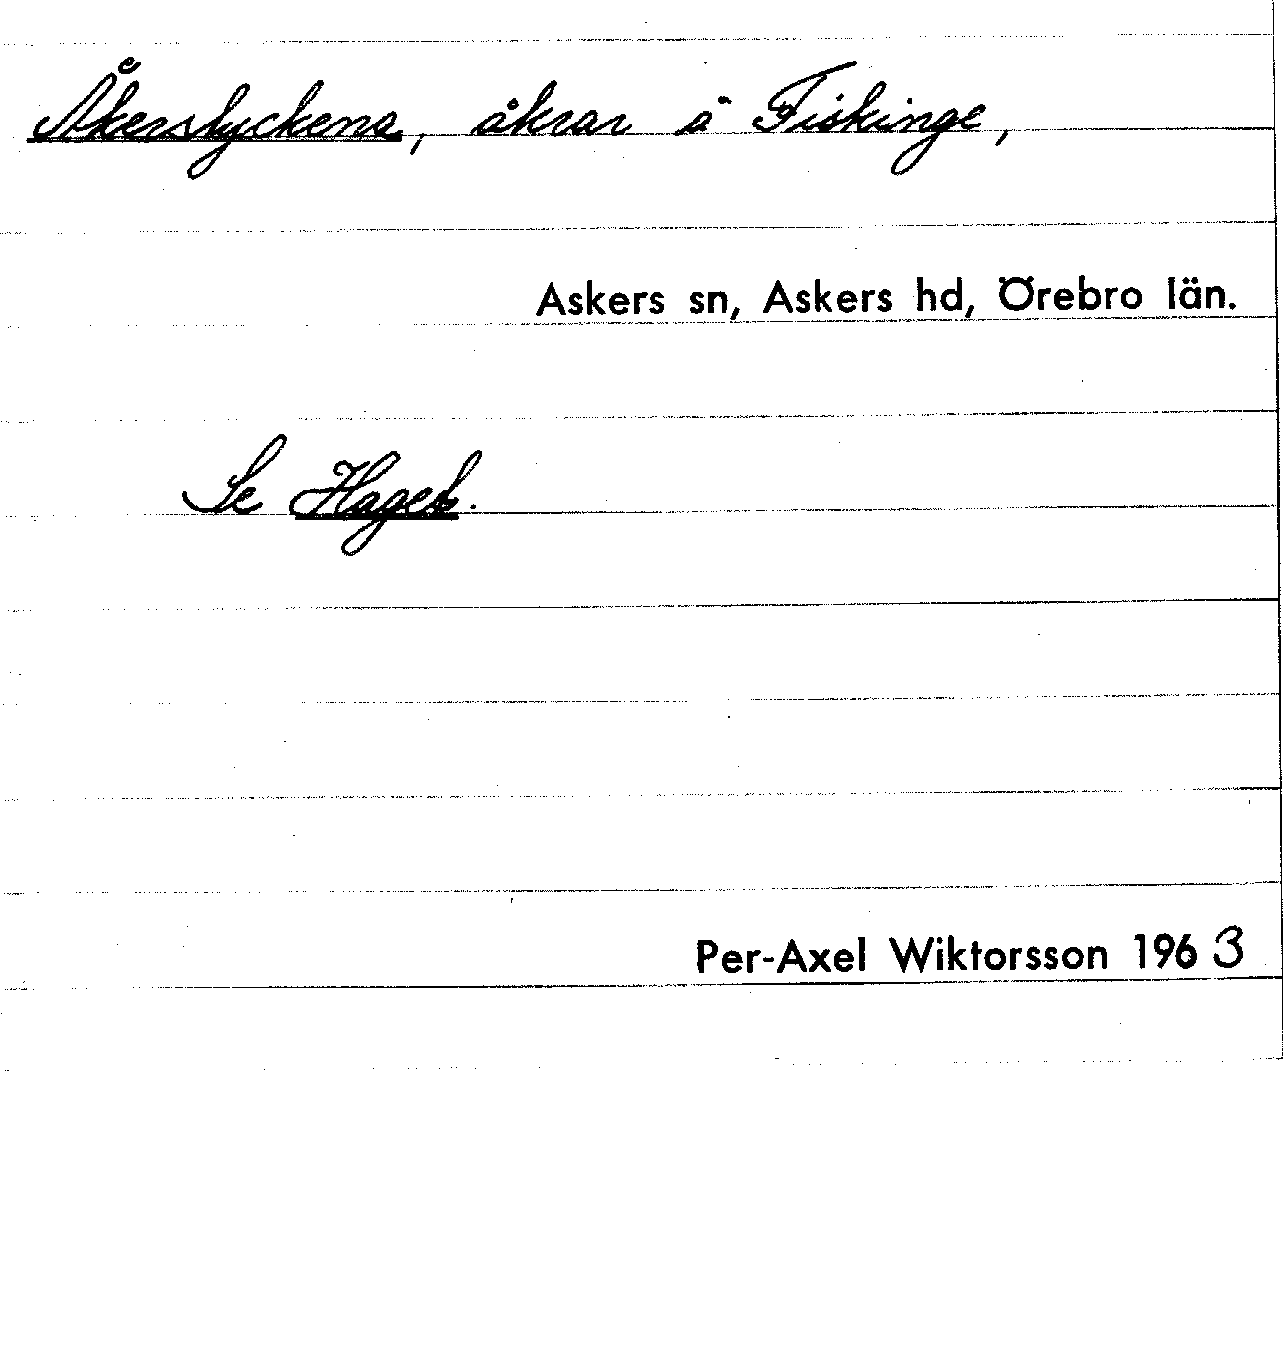 Åkerstyckena, åkrar å Fiskinge,
Askers sn, Askers hd, Örebro län.
Se Haget.
Per-Axel Wiktorsson 1963